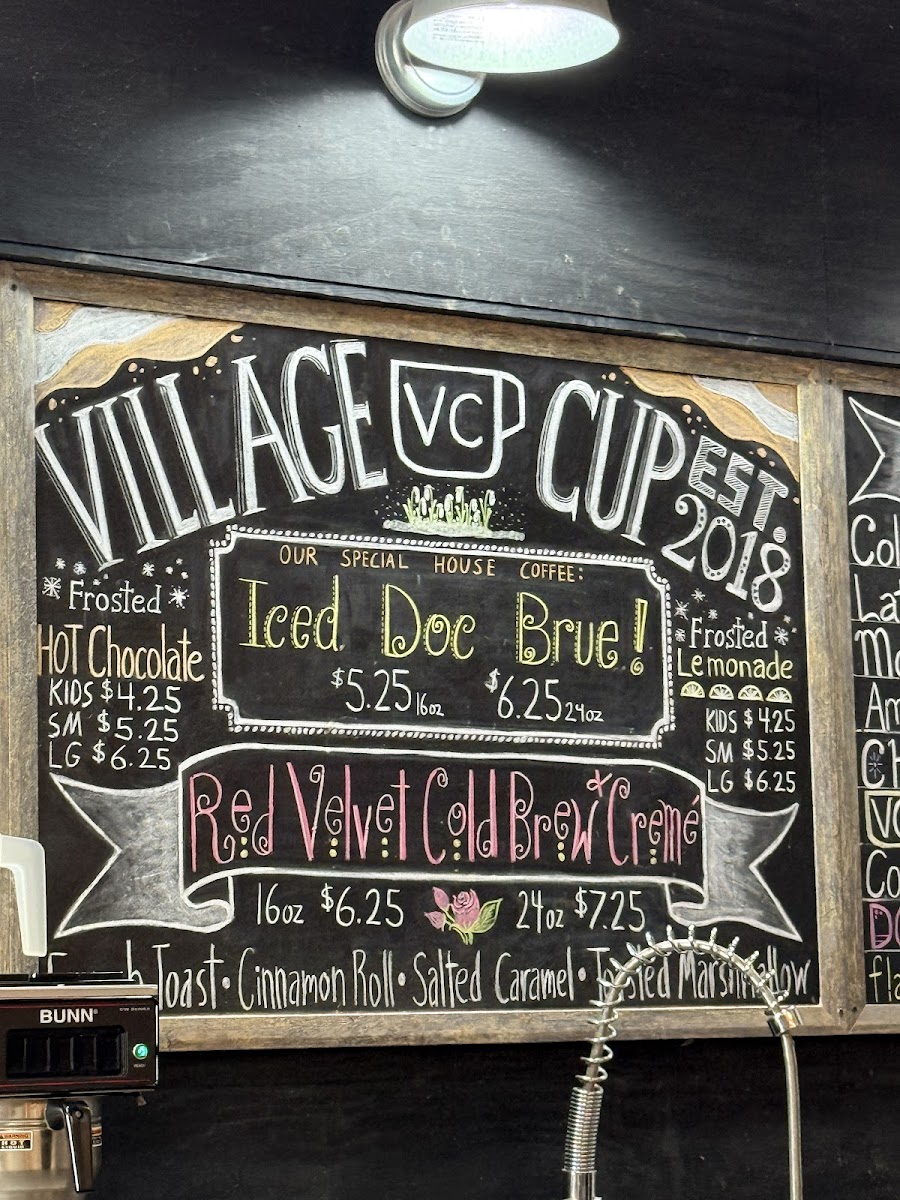 VILLAGE VC CUP
EST.
2018
OUR SPECIAL HOUSE COFFEE:
Iced Doc Brue!
$5.25 16oz $6.25 24oz
Frosted
HOT Chocolate
KIDS $4.25
SM $5.25
LG $6.25
Frosted
Lemonade
KIDS $4.25
SM $5.25
LG $6.25
Red Velvet Cold Brew*Cremé
16oz $6.25 24oz $7.25
Toast • Cinnamon Roll • Salted Caramel • Marshmallow
BUNN
HOT